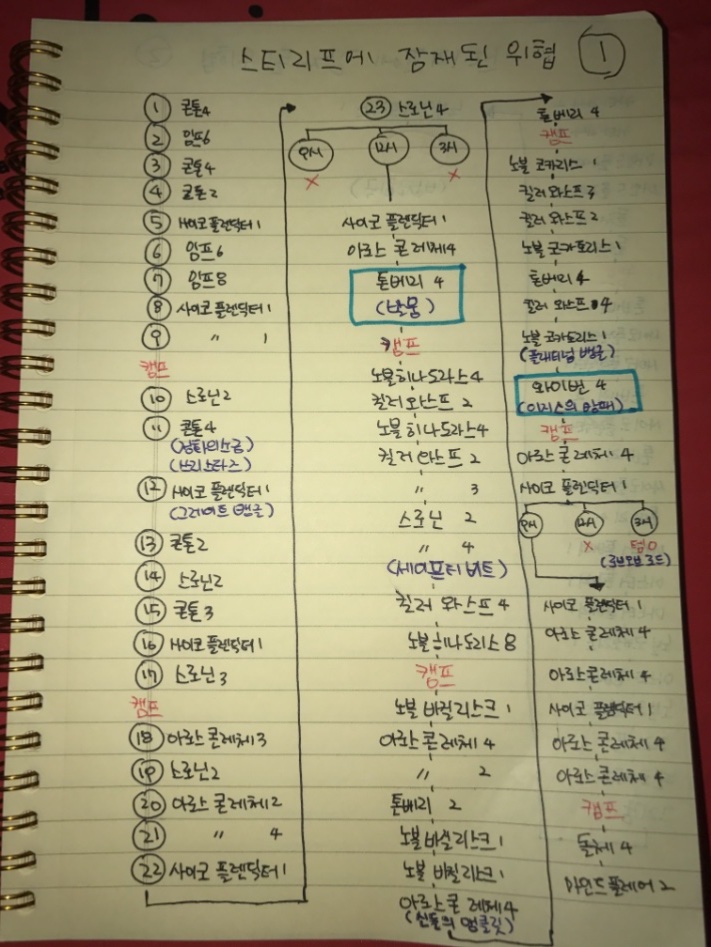 스티리프에 잠재된 위협 ①
① 콘톨4
② 임프6
③ 콘톨4
④ 콘톨2
⑤ 사이코 플렌덕터1
⑥ 임프6
⑦ 임프8
⑧ 사이코 플렌덕터1
⑨ 〃 1
캠프
⑩ 스로닌2
⑪ 콘톨4
(브리스타즈)
⑫ 사이코 플렌덕터1
(그레이트 뱅글)
⑬ 콘톨2
⑭ 스로닌2
⑮ 콘톨3
⑯ 사이코 플렌덕터1
⑰ 스로닌3
캠프
⑱ 아로스 콘레체3
⑲ 스로닌2
⑳ 아로스 콘레체2
㉑ 〃 4
㉒ 사이코 플렌덕터1
㉓ 스로닌4
9시 12시 3시
X X
사이코 플렌덕터1
아로스 콘레체4
톤베리 4
(반몽)
캠프
노블히나도라스4
킬러와스프 2
노블히나도라스4
킬러 와스프 2
〃 3
스로닌 2
〃 4
(세이프티 비트)
킬러 와스프4
노블 히나도리스 8
캠프
노블 바질리스크 1
아로스 콘레체 4
〃 2
톤베리 2
노블 바실리스크 1
노블 바질리스크1
아로스 콘 레체4
(신돌의 앵클릿)
톤베리 4
캠프
노블 코카리스 1
킬러 와스프3
킬러 와스프2
노블 코카토리스1
톤베리4
킬러 와스프4
노블 코카토리스1
(플래티넘 뱅글)
와이번 4
(이지스의 방패)
캠프
아로스 콘레체 4
사이코 플렌덕터1
9시 12시 3시
X 템O
(로브오브로드)
사이코 플렌덕터1
아로스 콘레체4
아로스콘레체4
사이코 플렌덕터1
아로스 콘레체4
아로스 콘레체4
캠프
돌체4
마인드플레이어2